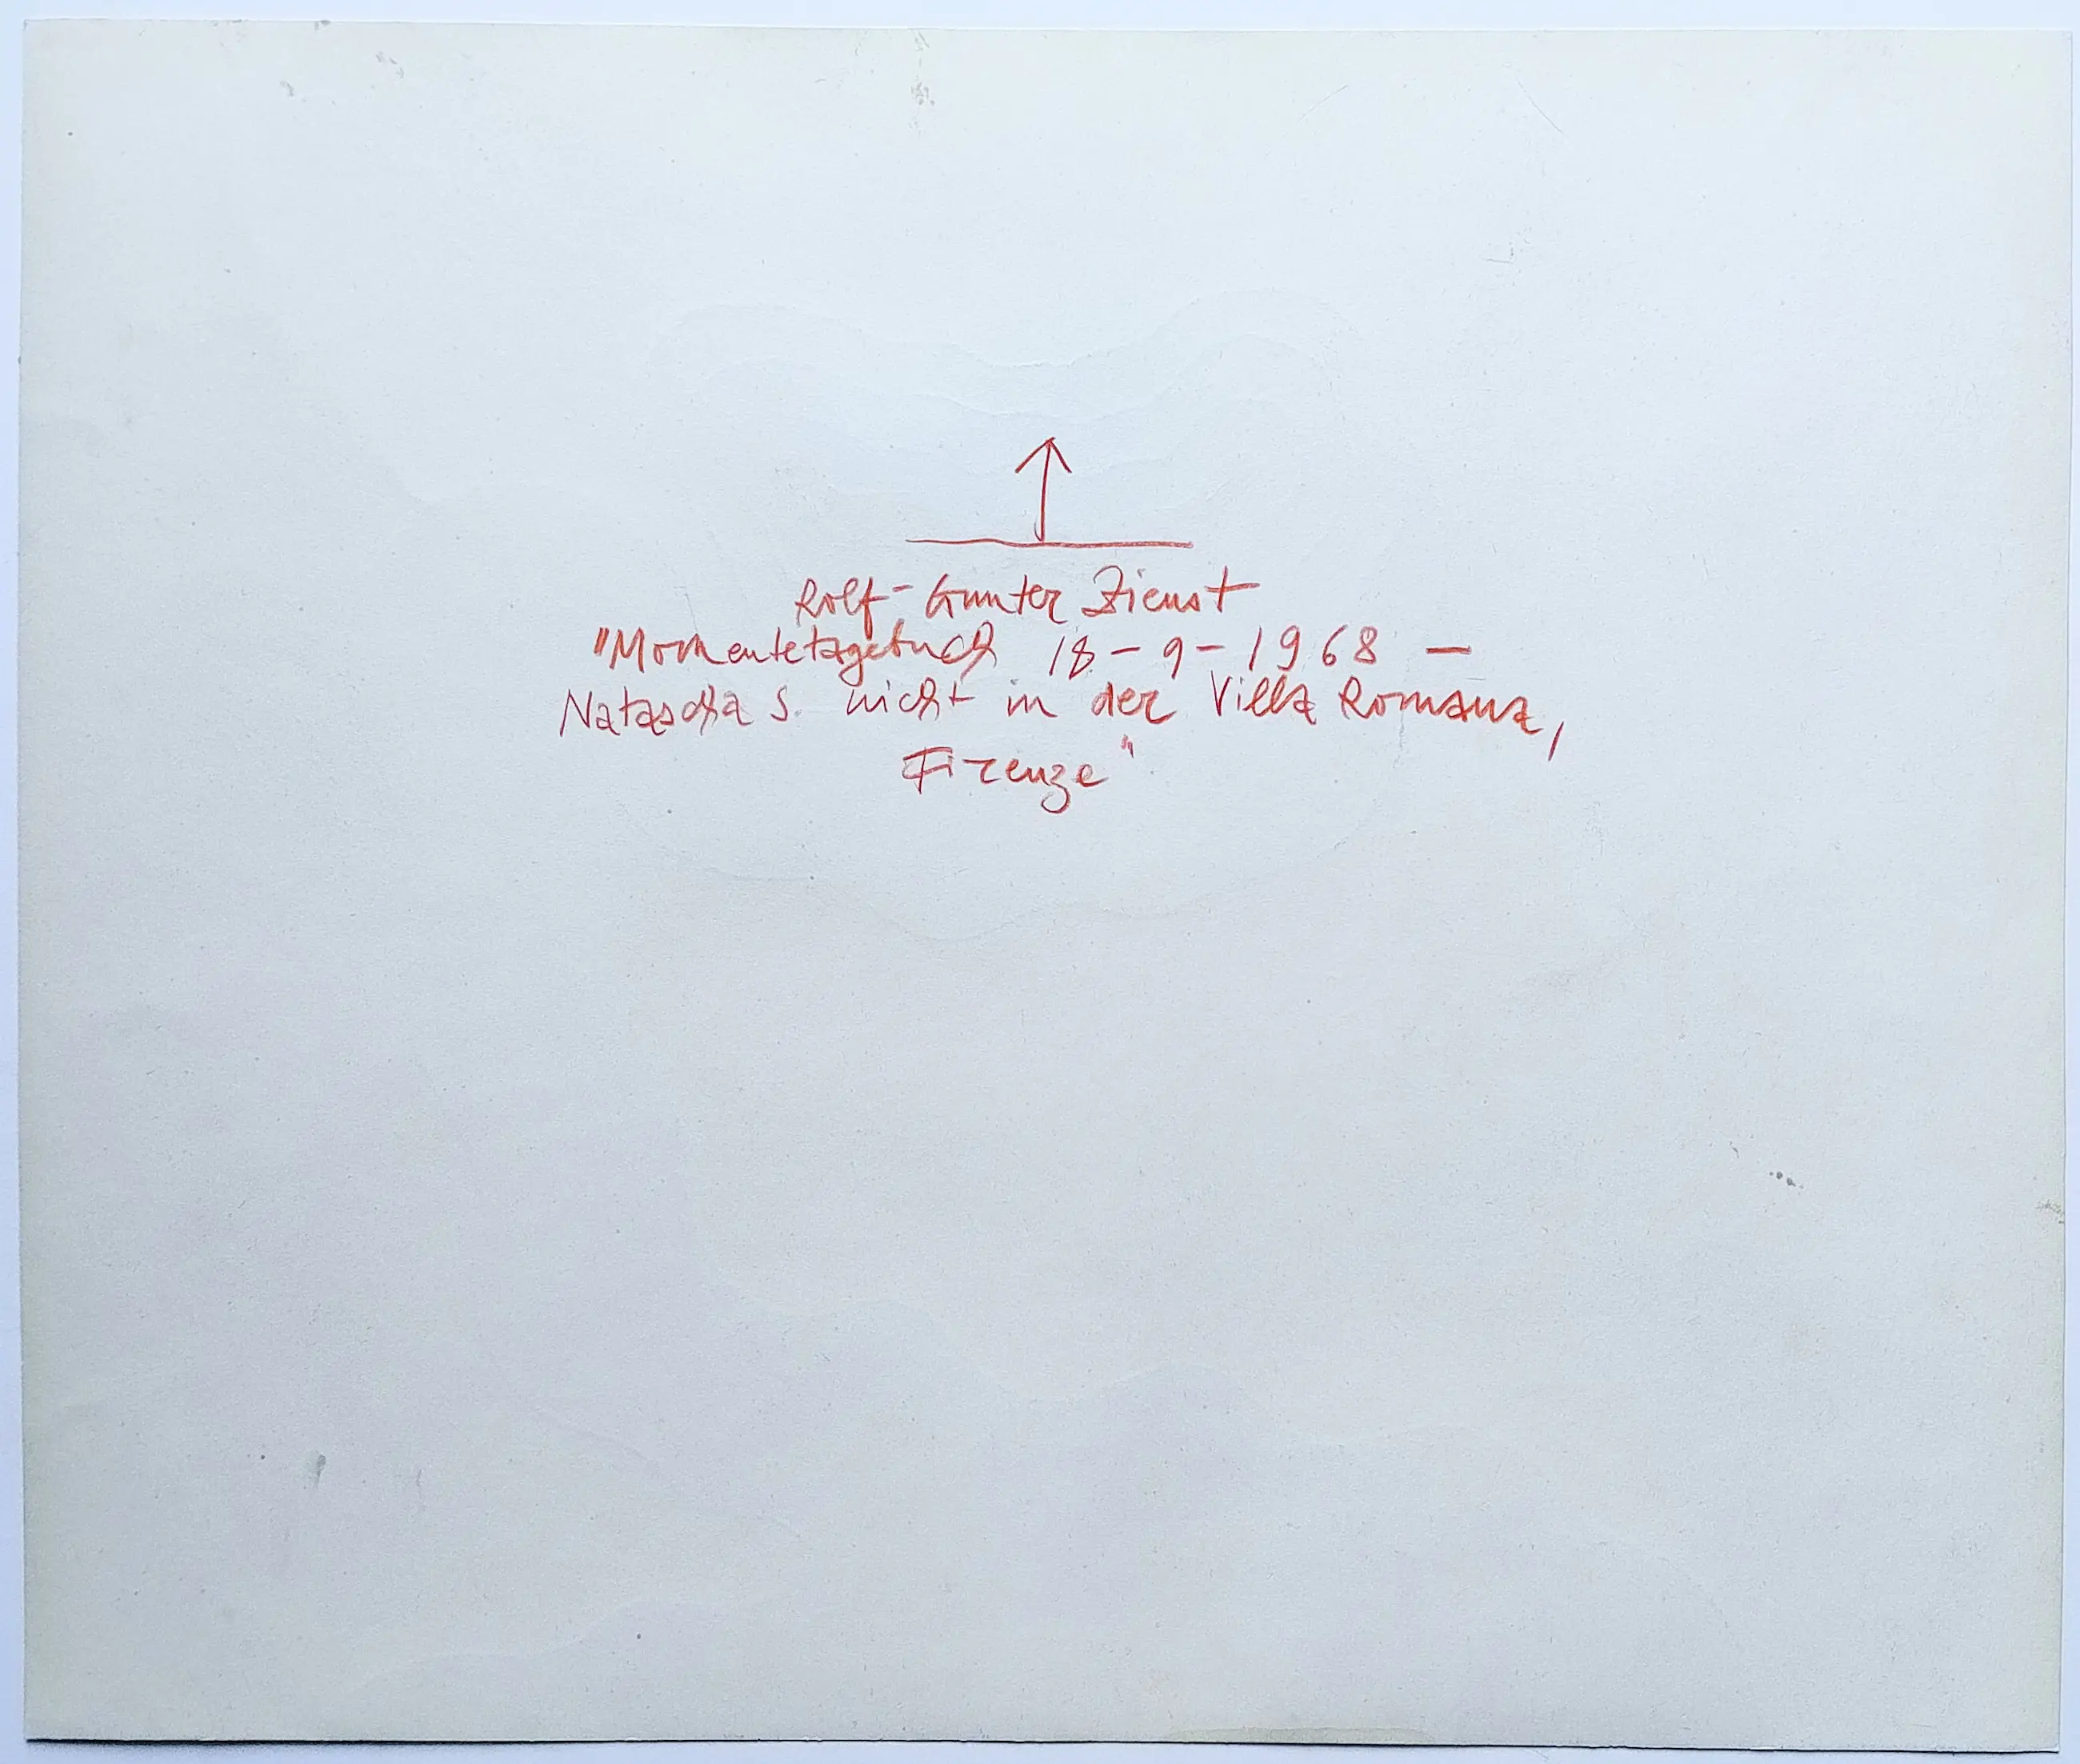 Rolf-Gunter Dienst
"Momentetagebuch 18-9-1968 —
Natascha S. nicht in der Villa Romana,
Firenze"